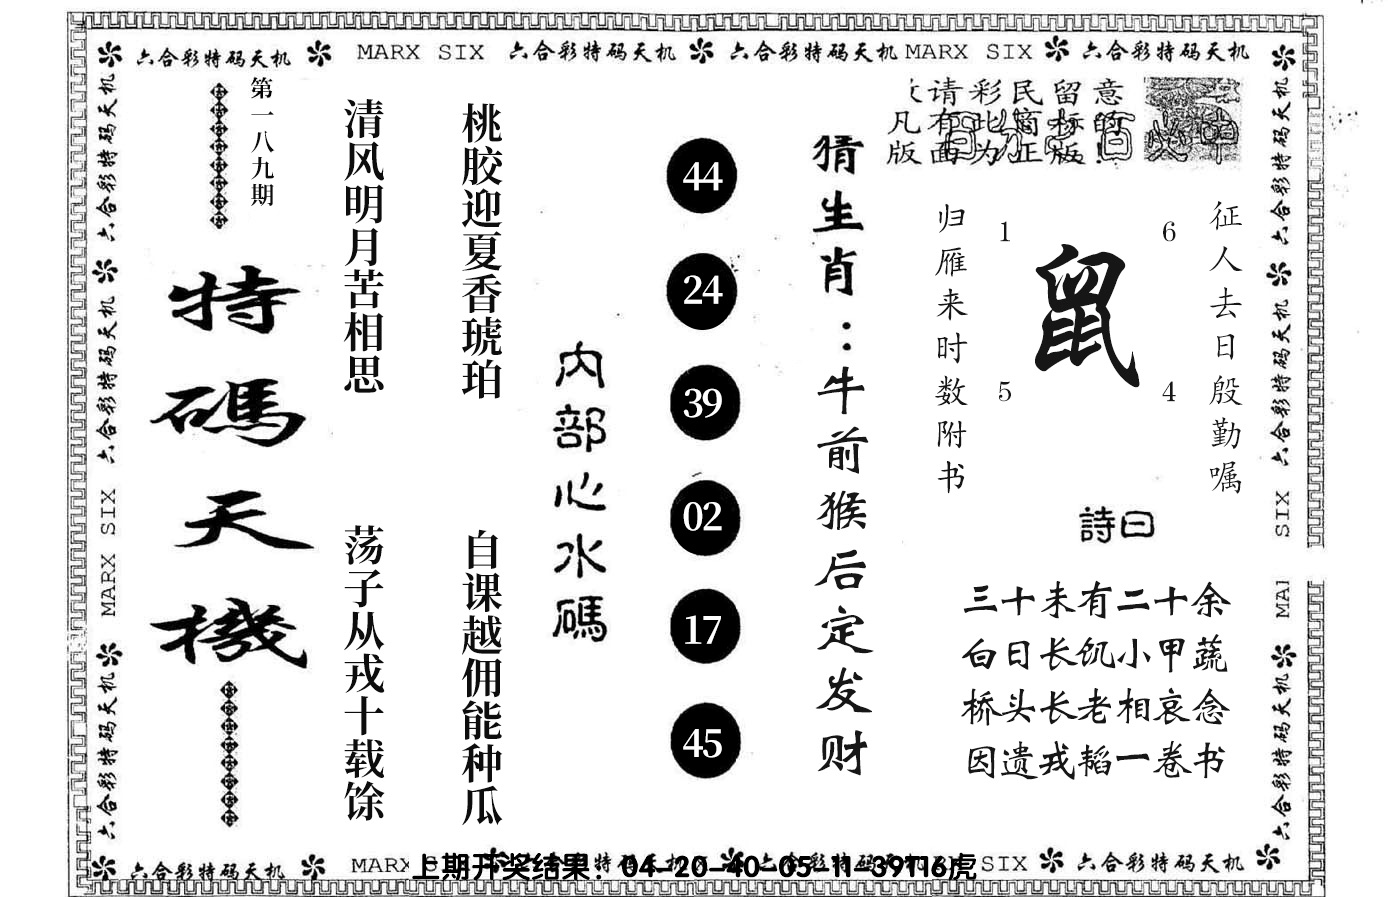 六合彩特码天机 MARX SIX 六合彩特码天机 六合彩特码天机 MARX SIX 六合彩特码天机
六合彩特码天机 六合彩特码天机 MARX SIX 六合彩特码天机
第一八九期
特碼天機
清风明月苦相思
荡子从戎十载馀
桃胶迎夏香琥珀
自课越佣能种瓜
内部心水碼
44
24
39
02
17
45
猜生肖：牛前猴后定发财
请彩民留意
凡有此窗标的
版面为正版!
归雁来时数附书
1
6
鼠
5
4
征人去日殷勤嘱
詩曰
三十未有二十余
白日长饥小甲蔬
桥头长老相哀念
因遗戎韬一卷书
六合彩特码天机 六合彩特码天机 SIX MAR 六合彩特码天机
六合彩特码天机 MARX SIX 六合彩特码天机
上期开奖结果：04-20-40-05-11-39T16虎